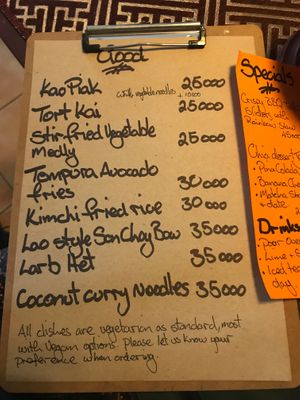 Good
Kao Piak 25000
with vegetable noodles + 10000
Tort Kai 25000
Stir-fried Vegetable
Medly 25000
Tempura Avocado
fries 30000
Kimchi fried rice 30000
Lao style San Choy Bow 35000
Larb Het 35000
Coconut curry Noodles 35000
All dishes are vegetarian as standard, most
with Vegan options. Please let us know your
preference when ordering.
Specials
Crispy BBQ
Sliders with
Rainbow Slaw
45000
Chia dessert
Pina Colada
Banana
Mocha
+ date
Drinks
Lime +
Iced tea
day